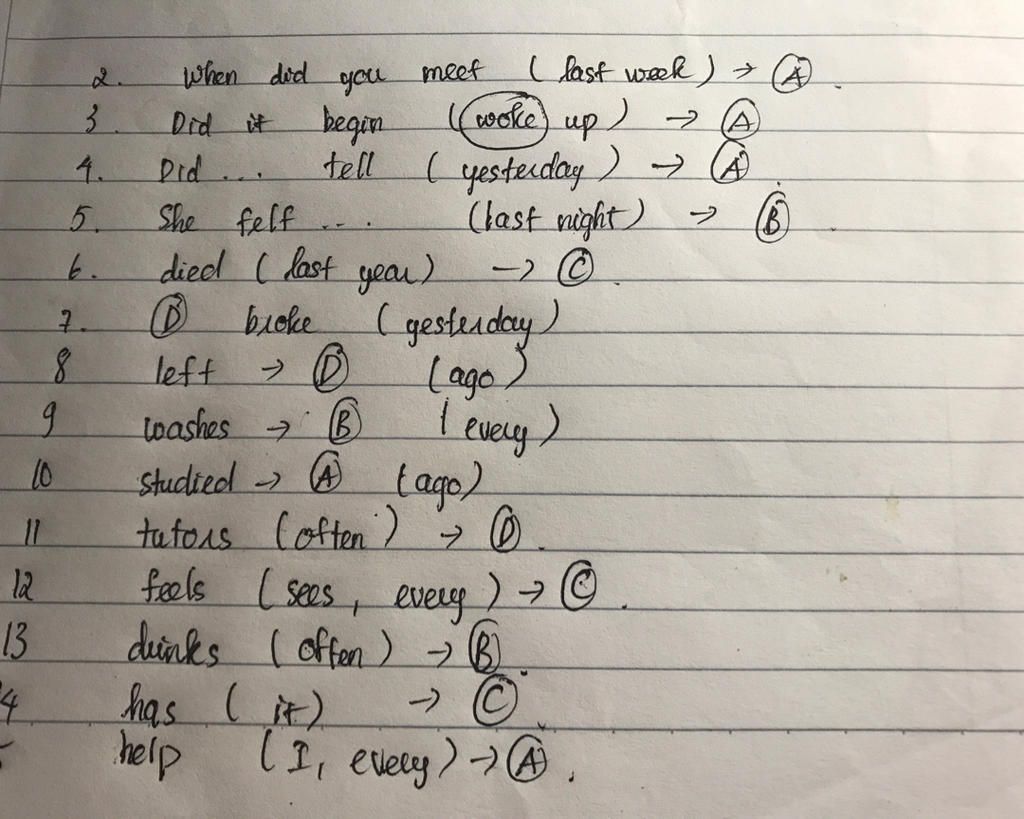 2. When did you meet (last week) → A.
3. Did it begin (woke up) → A
4. Did ... tell (yesterday) → A.
5. She felt ... (last night) → B.
6. died (last year) → C.
7. D broke (yesterday)
8 left → D (ago)
9 washes → B (every)
10 studied → A (ago)
11 tutors (often) → D.
12 feels (sees, every) → C.
13 drinks (often) → B.
4 has (it) → C
help (I, every) → A.